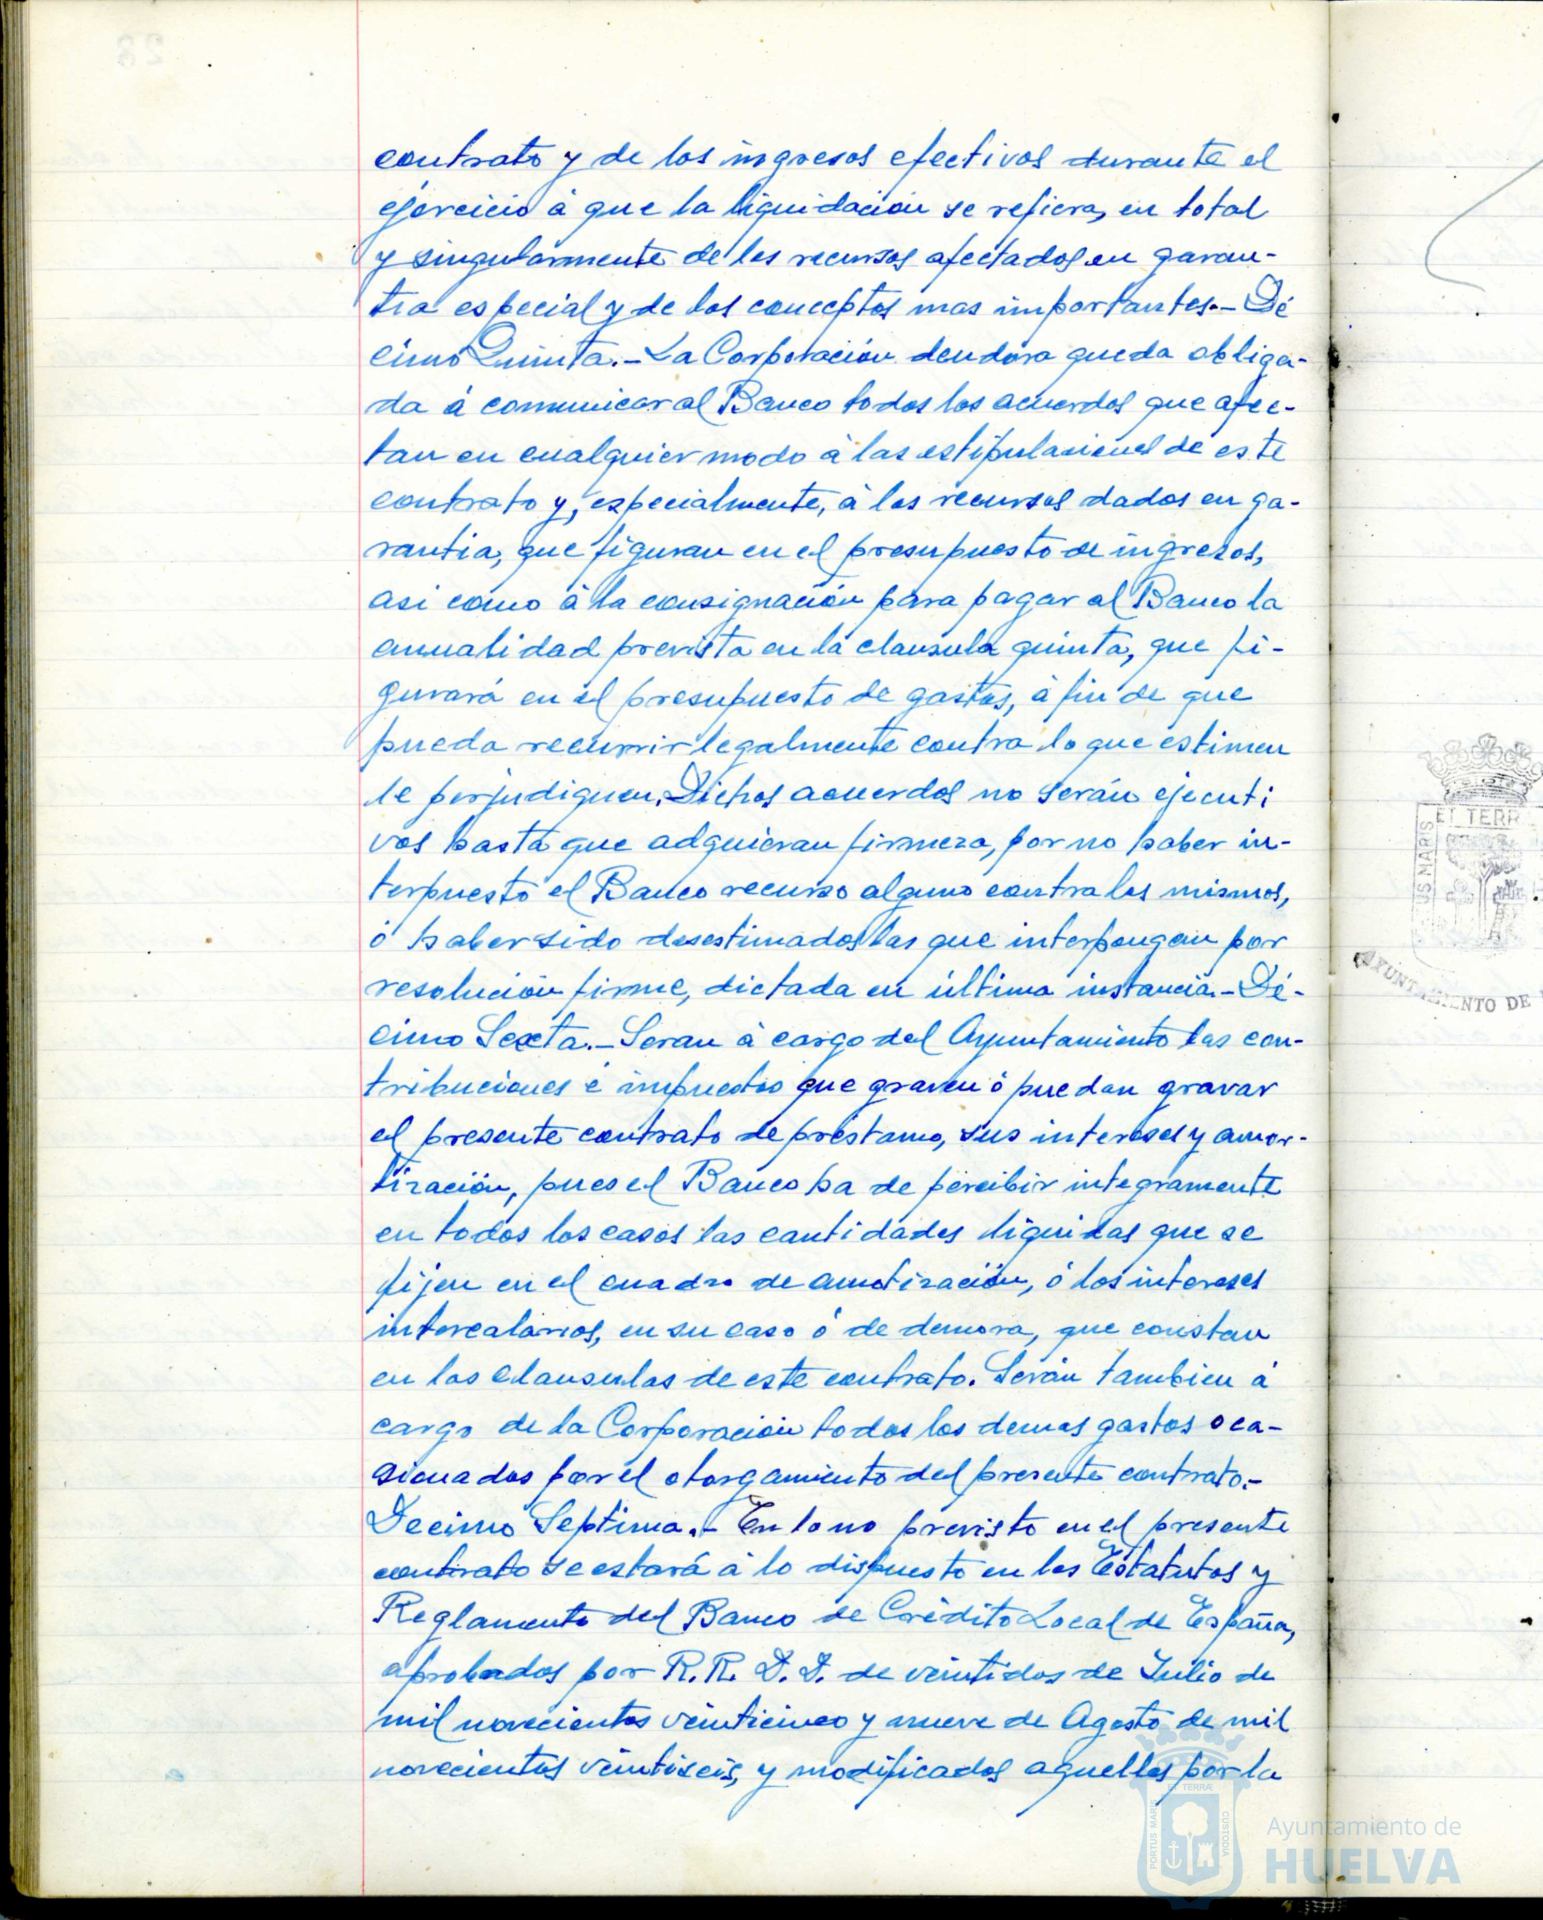 contrato y de los ingresos efectivos durante el
ejercicio á que la liquidación se refiera, en total
y singularmente de los recursos afectados en garan-
tia especial y de los conceptos mas importantes.- Dé
cimo Quinta.- La Corporación deudora queda obliga-
da á comunicar al Banco todos los acuerdos que afec-
tan en cualquier modo á las estipulaciones de este
contrato y, especialmente, á los recursos dados en ga-
rantia, que figuran en el presupuesto de ingresos,
asi como á la consignación para pagar al Banco la
anualidad prevista en la clausula quinta, que fi-
gurará en el presupuesto de gastos, á fin de que
pueda recurrir legalmente contra lo que estimen
le perjudiquen. Dichos acuerdos no serán ejecuti
vos hasta que adquieran firmeza, por no haber in-
terpuesto el Banco recurso alguno contra los mismos,
ó haber sido desestimados las que interpongan por
resolución firme, dictada en última instancia.- Dé-
cimo Sexta.- Seran á cargo del Ayuntamiento las con-
tribuciones é impuestos que graven ó puedan gravar
el presente contrato de préstamo, sus intereses y amor-
tización, pues el Banco ha de percibir integramente
en todos los casos las cantidades liquidas que se
fijen en el cuadro de amotización, ó los intereses
intercalarios, en su caso ó de demora, que constan
en las clausulas de este contrato. Serán tambien á
cargo de la Corporación todos los demas gastos oca-
sionados por el otorgamiento del presente contrato.-
Decimo Septima.- En lo no previsto en el presente
contrato se estará á lo dispuesto en los Estatutos y
Reglamento del Banco de Crédito Local de España,
aprobados por R.R. D.D. de veintidos de Julio de
mil novecientos veinticinco y nueve de Agosto de mil
novecientos veintiseis, y modificados aquellos por la
ET TERR
US MARIS
AYUNTAMIENTO DE
PORTUS MARIS
ET TERRÆ
CUSTODIA
Ayuntamiento de
HUELVA